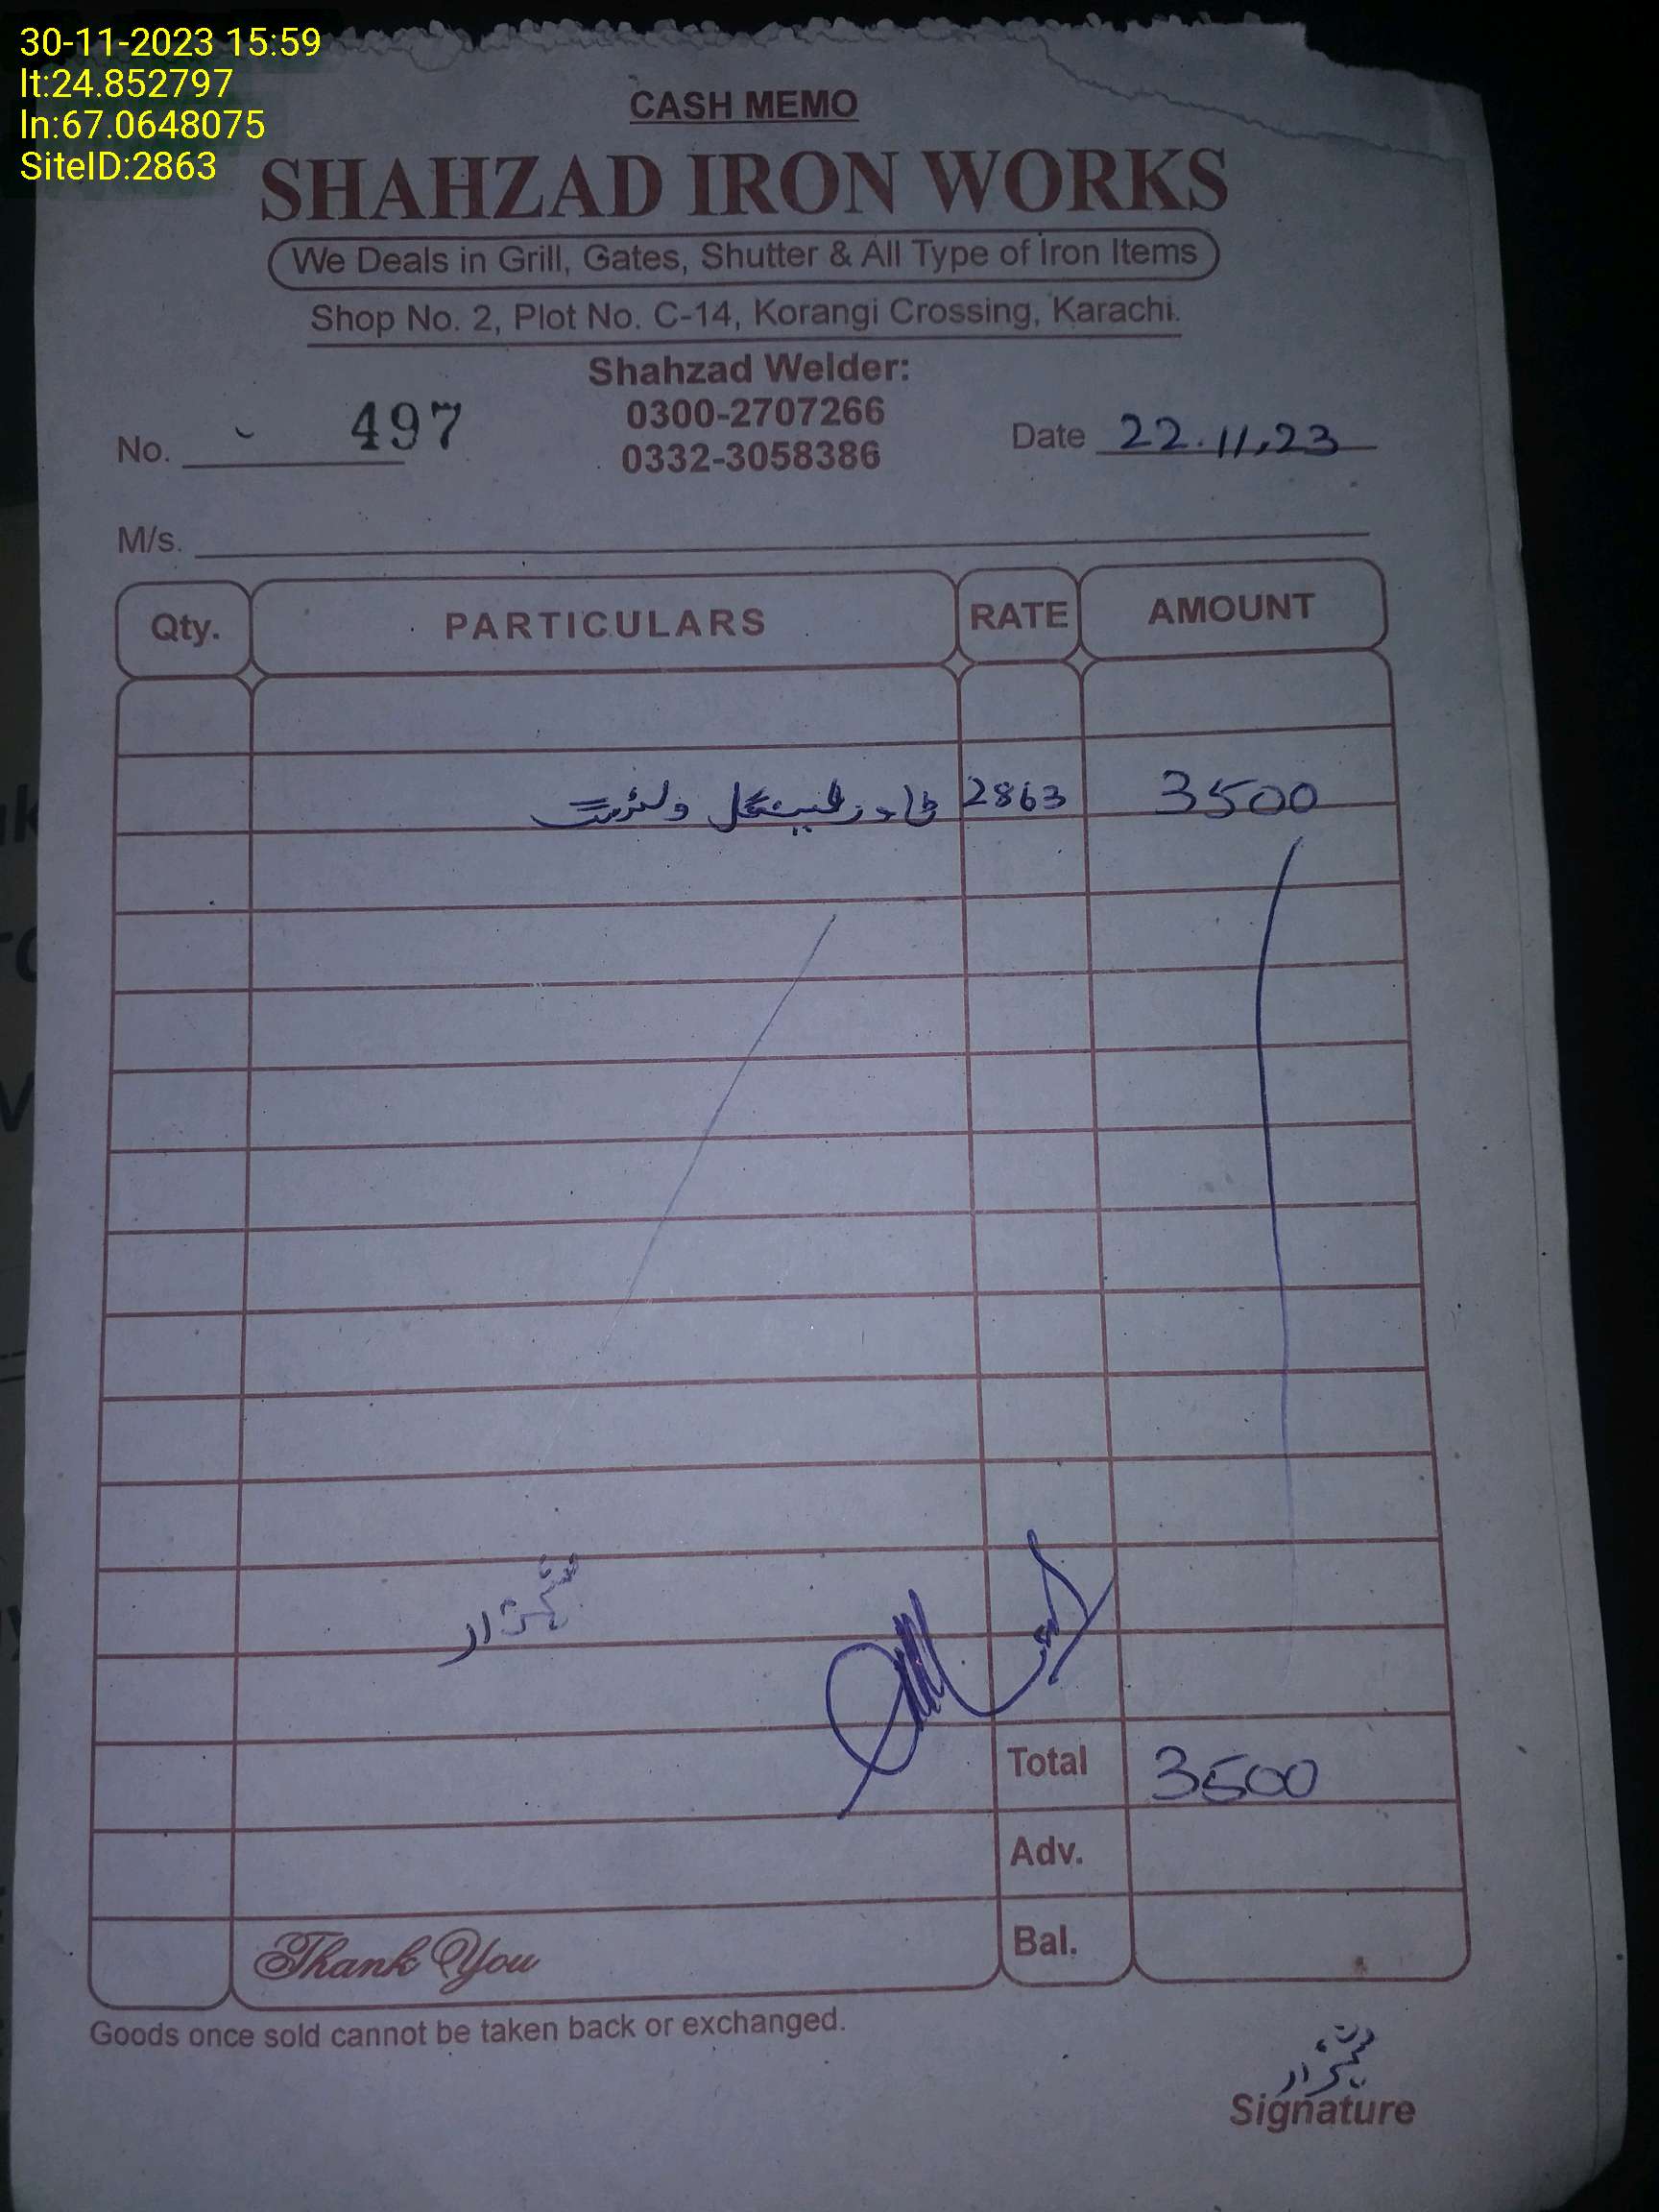 30-11-2023 15:59
lt:24.852797
ln:67.0648075
SiteID:2863
CASH MEMO
SHAHZAD IRON WORKS
We Deals in Grill, Gates, Shutter & All Type of Iron Items
Shop No. 2, Plot No. C-14, Korangi Crossing, Karachi.
Shahzad Welder:
0300-2707266
0332-3058386
No. 497
Date 22.11,23
M/s.
Qty. PARTICULARS RATE AMOUNT
ٹاور 2863 3500
Total 3500
Adv.
Bal.
Thank You
Goods once sold cannot be taken back or exchanged.
Signature